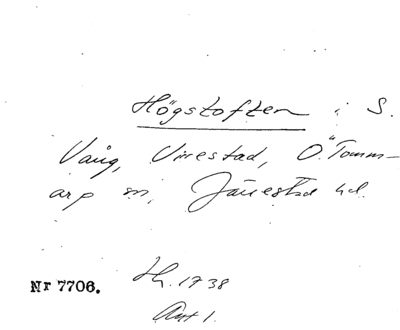 Högstoften i S.
Vång, Virestad, Ö. Tomm-
arp sn, Järrestad hd
Nr 7706.
Lh. 1738
Akt 1.